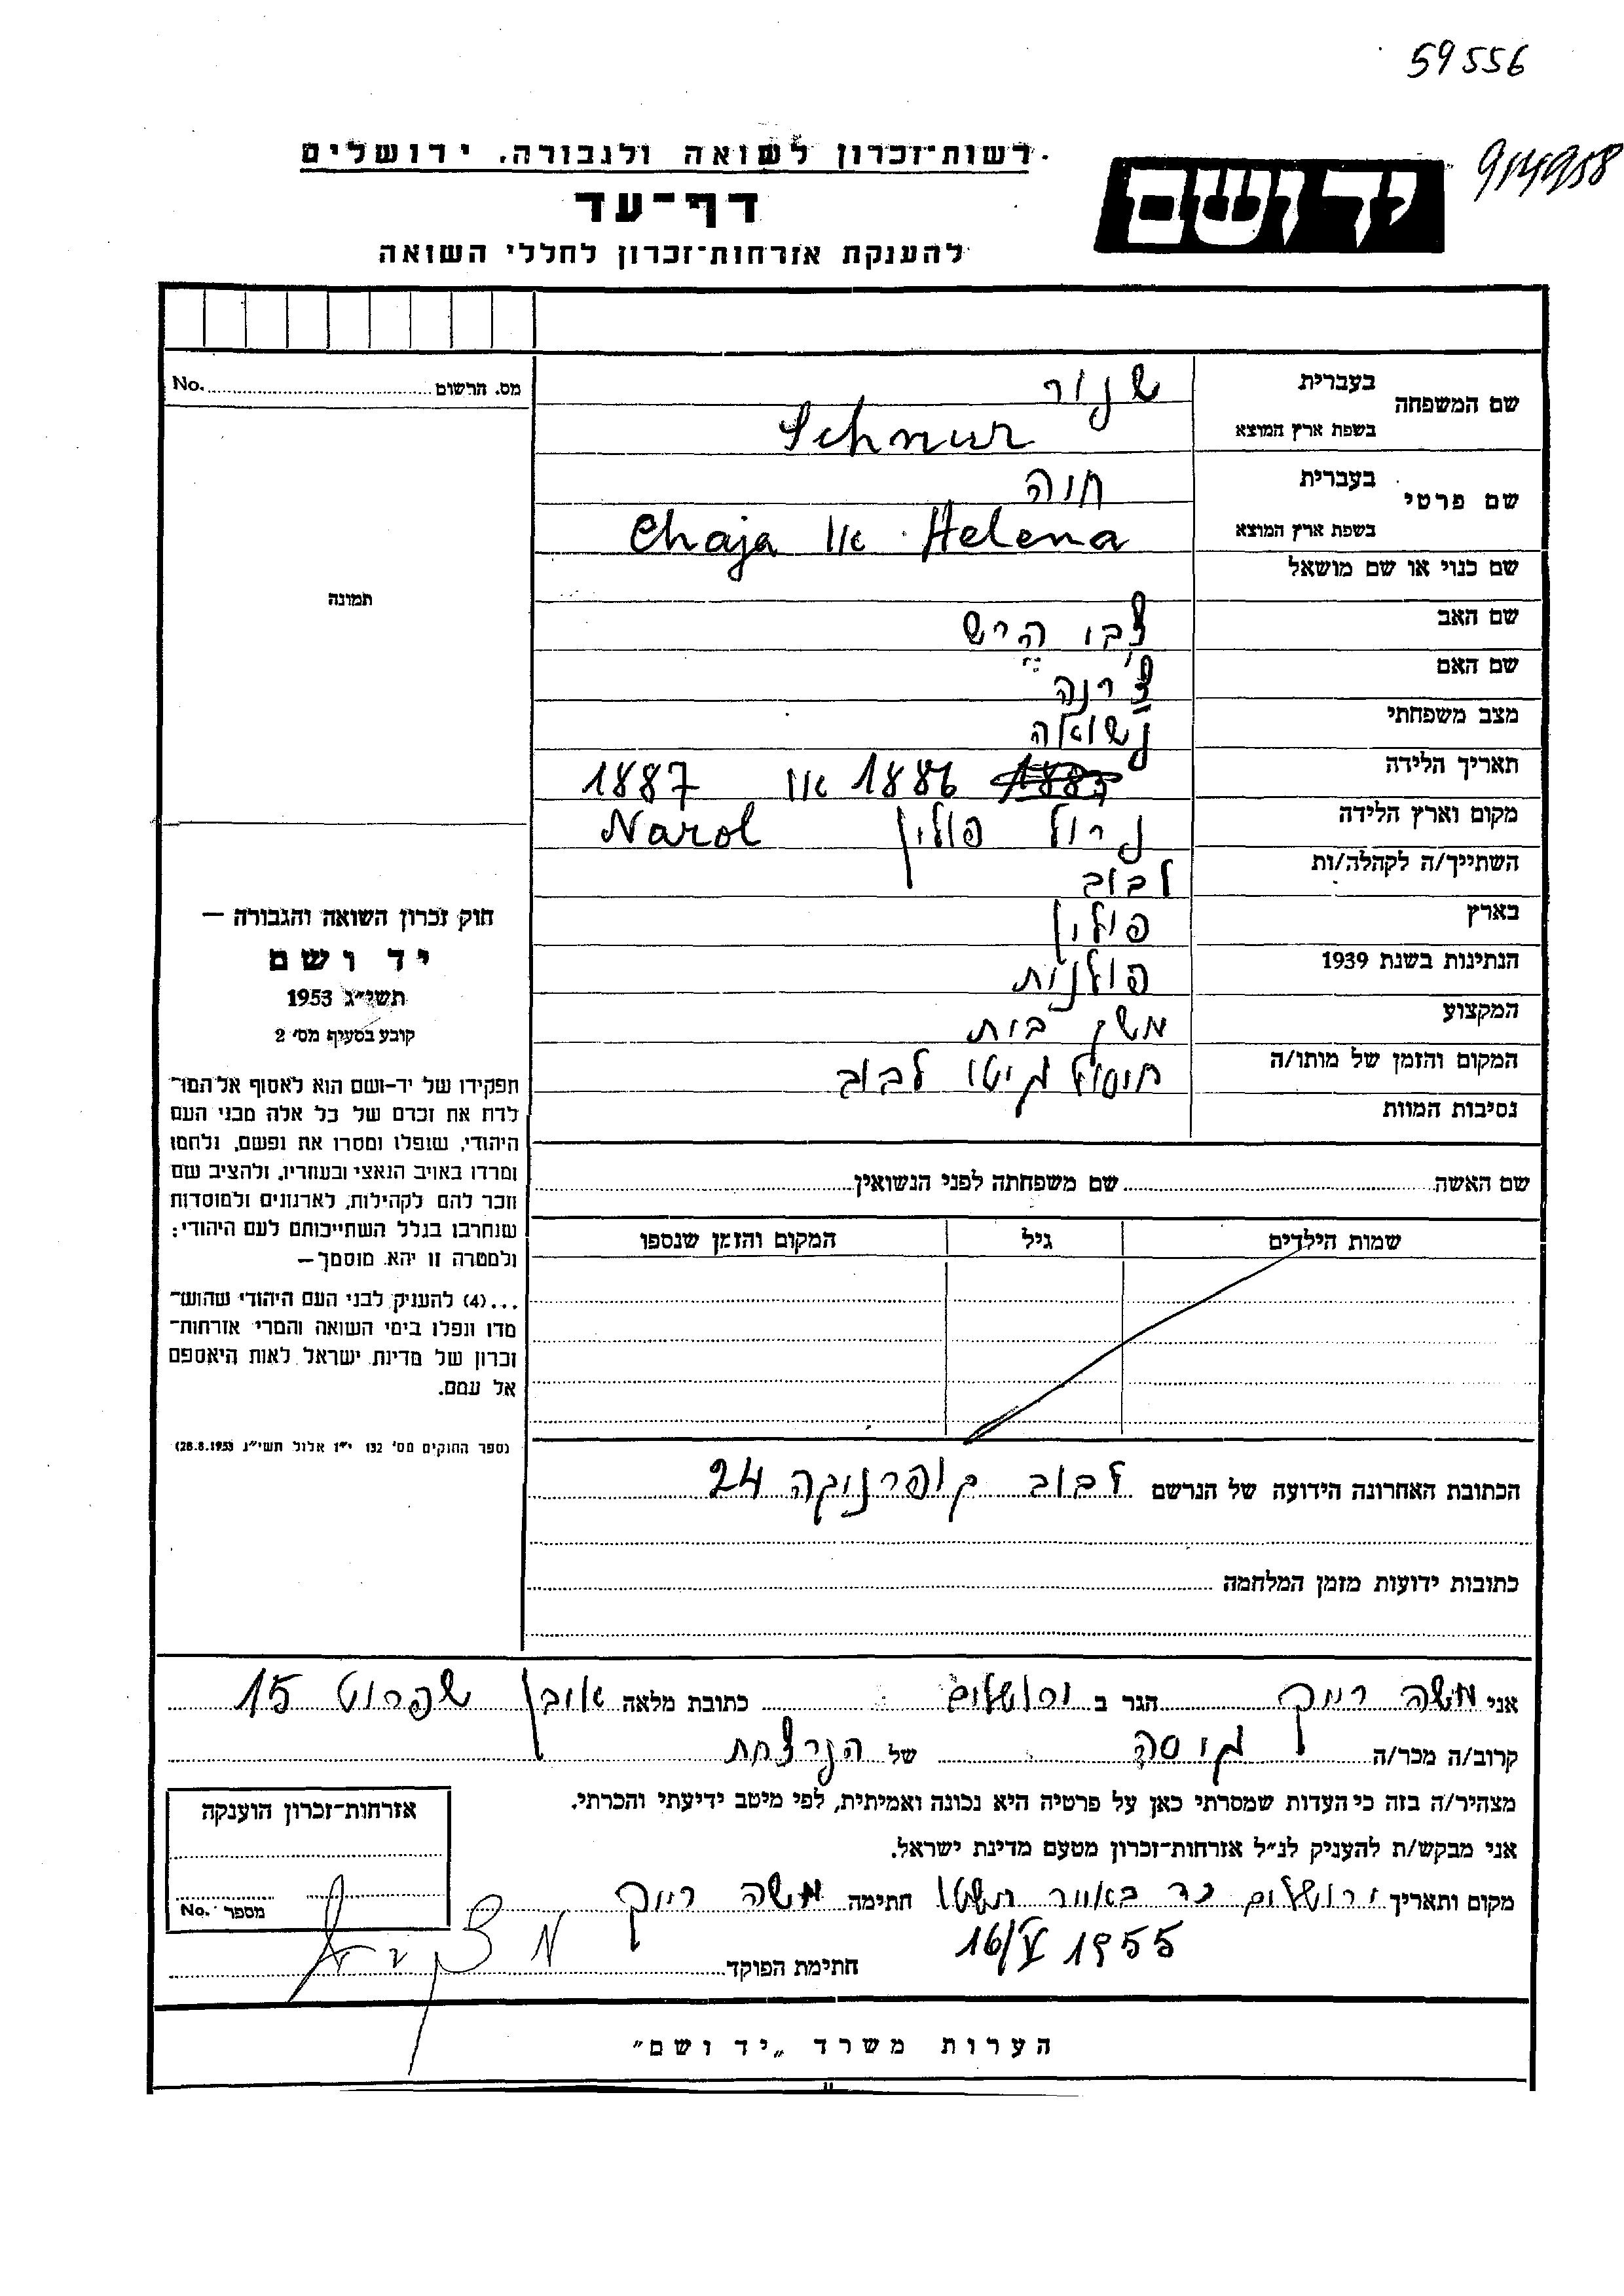 59556
רשות־זכרון לשואה ולגבורה, ירושלים
יד ושם
דף־עד
להענקת אזרחות־זכרון לחללי השואה
מס. הרשום No.
שם המשפחה
בעברית שנור
בשפת ארץ המוצא Schnur
שם פרטי
בעברית חיה
בשפת ארץ המוצא Chaja או Helena
שם כנוי או שם מושאל
תמונה
שם האב צבי הירש
שם האם
מצב משפחתי נשואה
תאריך הלידה 1886 או 1887
מקום וארץ הלידה נרול פולין Narol
השתייך/ה לקהלה/ות לבוב
בארץ פולין
הנתינות בשנת 1939 פולנית
המקצוע משק בית
המקום והזמן של מותו/ה חיסול גיטו לבוב
נסיבות המוות
חוק זכרון השואה והגבורה —
יד ושם
תשי״ג 1953
קובע בסעיף מס׳ 2
תפקידו של יד־ושם הוא לאסוף אל המו־
לדת את זכרם של כל אלה מבני העם
היהודי, שנפלו ומסרו את נפשם, נלחמו
ומרדו באויב הנאצי ובעוזריו, ולהציב שם
וזכר להם לקהילות, לארגונים ולמוסדות
שנחרבו בגלל השתייכותם לעם היהודי;
ולמטרה זו יהא מוסמך—
...(4) להעניק לבני העם היהודי שהוש־
מדו ונפלו בימי השואה והמרי אזרחות־
זכרון של מדינת ישראל לאות היאספם
אל עמם.
(ספר החוקים מס׳ 132 י״ז אלול תשי״ג 28.8.1953)
שם האשה שם משפחתה לפני הנשואין
שמות הילדים גיל המקום והזמן שנספו
הכתובת האחרונה הידועה של הנרשם לבוב קופרניקה 24
כתובות ידועות מזמן המלחמה
אני משה רייך הגר ב ירושלים כתובת מלאה אובן שפרוט 15
קרוב/ה מכר/ה גיסה של הנרצחת
מצהיר/ה בזה כי העדות שמסרתי כאן על פרטיה היא נכונה ואמיתית, לפי מיטב ידיעתי והכרתי.
אני מבקש/ת להעניק לנ״ל אזרחות־זכרון מטעם מדינת ישראל.
מקום ותאריך ירושלים כד באייר תשטו חתימה משה רייך
16/V 1955
חתימת הפוקד
אזרחות־זכרון הוענקה
מספר No.
הערות משרד „יד ושם״